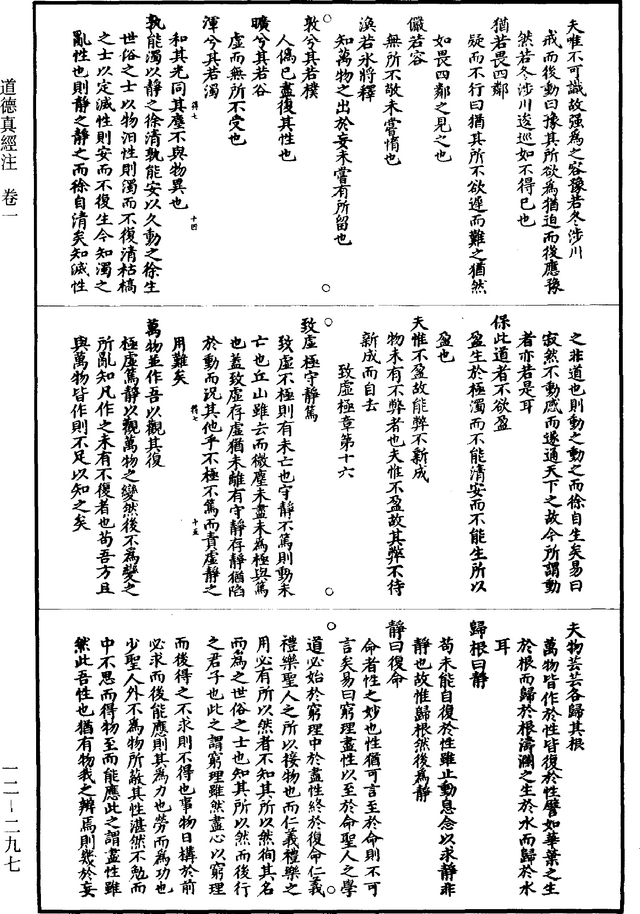 夫惟不可識故强為之容豫若冬涉川
戒而後動曰豫其所欲為猶迫而後應豫
然若冬涉川逡巡如不得已也
猶若畏四鄰
疑而不行曰猶其所不欲遲而難之猶然
如畏四鄰之見之也
儼若容
無所不敬未嘗惰也
渙若氷將釋
知萬物之出於妄未嘗有所留也
敦兮其若樸
人偽已盡復其性也
曠兮其若谷
虛而無所不受也
渾兮其若濁
和其光同其塵不與物異也
孰能濁以靜之徐清孰能安以久動之徐生
世俗之士以物汩性則濁而不復清枯槁
之士以定滅性則安而不復生今知濁之
亂性也則靜之靜之而徐自清矣知滅性
之非道也則動之動之而徐自生矣易曰
寂然不動感而遂通天下之故今所謂動
者亦若是耳
保此道者不欲盈
盈生於極濁而不能清安而不能生所以
盈也
夫惟不盈故能弊不新成
物未有不弊者也夫惟不盈故其弊不待
新成而自去
致虛極章第十六
致虛極守靜篤
致虛不極則有未亡也守靜不篤則動未
亡也丘山雖去而微塵未盡未為極與篤
也蓋致虛存虛猶未離有守靜存靜猶陷
於動而況其他乎不極不篤而責虛靜之
用難矣
萬物並作吾以觀其復
極虛篤靜以觀萬物之變然後不為變之
所亂知凡作之未有不復者也苟吾方且
與萬物皆作則不足以知之矣
夫物芸芸各歸其根
萬物皆作於性皆復於性譬如華葉之生
於根而歸於根濤瀾之生於水而歸於水
耳
歸根曰靜
苟未能自復於性雖止動息念以求靜非
靜也故惟歸根然後為靜
靜曰復命
命者性之妙也性猶可言至於命則不可
言矣易曰窮理盡性以至於命聖人之學
道必始於窮理中於盡性終於復命仁義
禮樂聖人之所以接物也而仁義禮樂之
用必有所以然者不知其所以然徇其名
而為之世俗之士也知其所以然而後行
之君子也此之謂窮理雖然盡心以窮理
而後得之不求則不得也事物日構於前
必求而後能應則其為力也勞而為功也
少聖人外不為物所蔽其性湛然不勉而
中不思而得物至而能應此之謂盡性雖
然此吾性也猶有物我之辨焉則幾於妄
道德真經注 卷一
一二－二九七
得七
十四
得七
十五